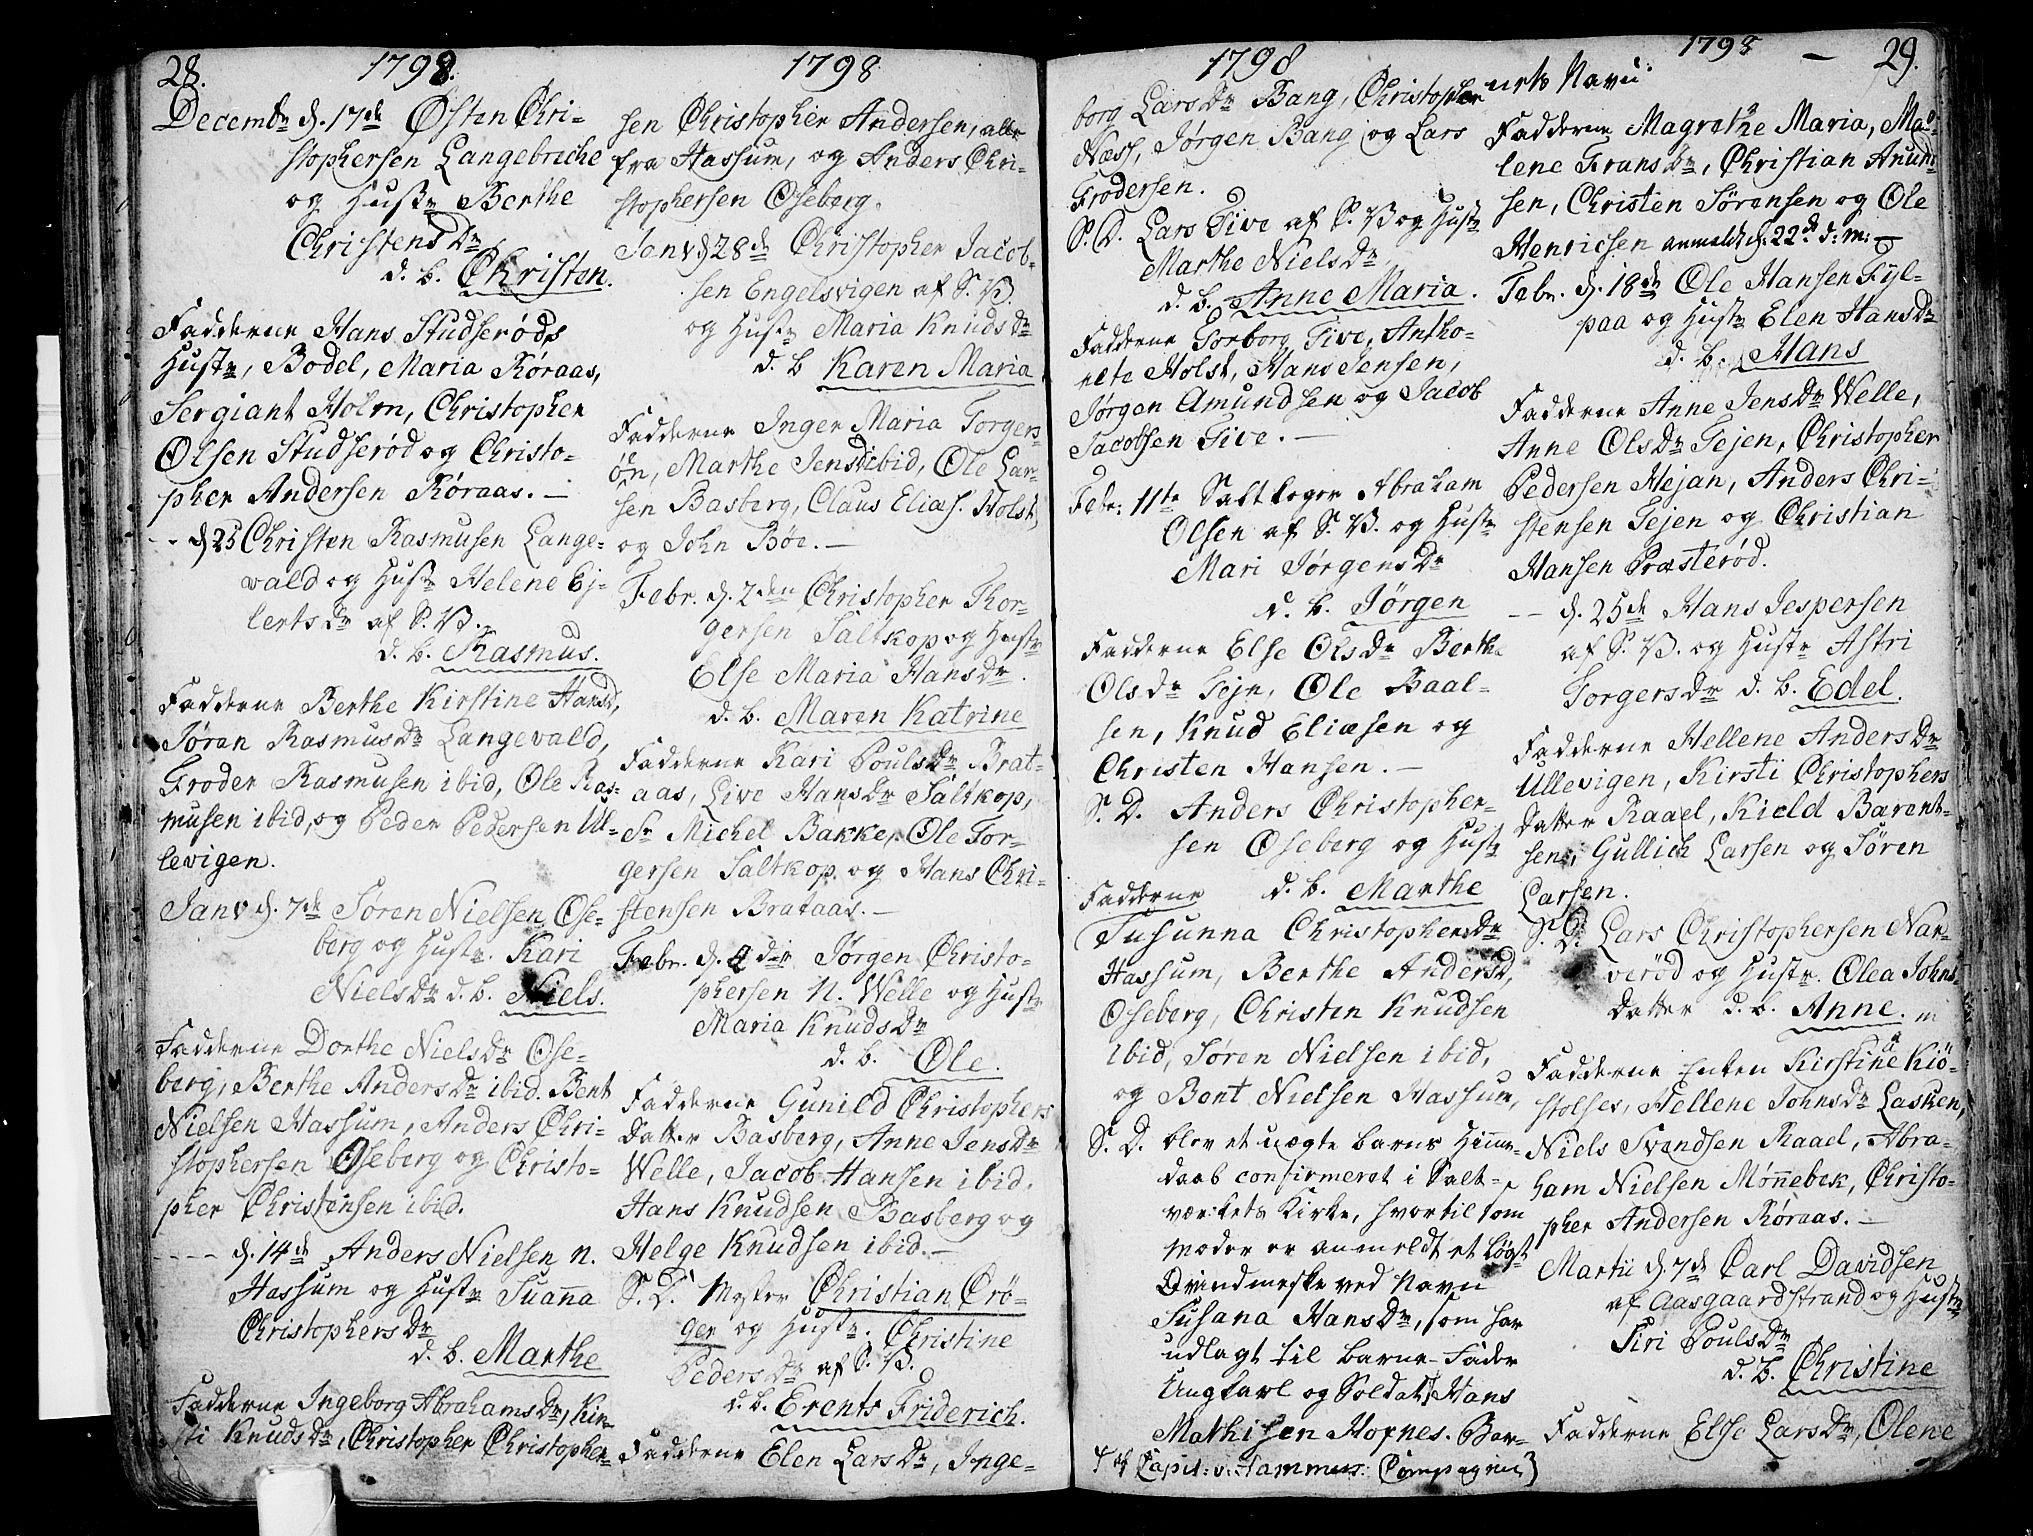 28.
1798.
Decembr d. 17de Østen Chri-
stophersen Langebreche
og Hustr Berthe
Christensdr
d. b. Christen.
Fadderne Hans Studserøds
Hustr, Bodel, Maria Røraas,
Sergiant Holm, Christopher
Olsen Studserød og Christo-
pher Andersen Røraas. -
- - d. 25 Christen Rasmusen Lange-
vald og Hustr Helene Ej-
lertsdr af S. V.
d. b. Rasmus.
Fadderne Berthe Kirstine Hansd,
Jøran Rasmusdr Langevald,
Froder Rasmusen ibid, Ole Ras-
musen ibid, og Peder Pedersen Ul-
levigen.
Janv d. 7de Søren Nielsen Ose-
berg og Hustr. Kari
Nielsdr d. b. Niels.
Fadderne Dorthe Nielsdr Ose-
berg, Berthe Andersdr ibid. Bent
Nielsen Hassum, Anders Chri-
stophersen Oseberg og Christo-
pher Christensen ibid.
- - - - d. 14de Anders Nielsen n.
Hassum og Hustr Suanna
Christophersdr
d. b. Marthe
Fadderne Ingeborg Abrahamsdr, Kir-
sti Knudsdr, Christopher Christopher-
1798
sen Christopher Andersen, alle
fra Hassum, og Anders Chri-
stophersen Oseberg.
Janv d. 28de Christopher Jacob-
sen Engelsvigen af S. V.
og Hustr Maria Knudsdr
d. b Karen Maria
Fadderne Inger Maria Torgers-
øn, Marthe Jensd ibid, Ole Lar-
sen Basberg, Claus Elias. Holst,
og John Böe. -
Febr. d. 2den Christopher Thor-
gersen Saltkop og Hustr
Else Maria Hansdr.
d. b. Maren Katrine
Fadderne Kari Poulsdr Brat-
aas, Live Hansdr Saltkop,
Sr Michel Bakke, Ole Tor-
gersen Saltkop og Hans Chri-
stensen Brataas. -
Febr. d. 4die Jørgen Christo-
phersen N. Welle og Hustr
Maria Knudsdr
d. b. Ole.
Fadderne Gunild Christophers
Datter Basberg, Anne Jensdr
Welle, Jacob Hansen ibid.
Hans Knudsen Basberg og
Helge Knudsen ibid. -
S. D. Mester Christian Crö-
ger og Hustr. Christine
Pedersdr af S. V.
d. b. Erents Friderich.
Fadderne Elen Larsdr, Inge-
1798
borg Larsdr Bang, Christopher
Næss, Jørgen Bang og Lars
Frodersen.
S. D. Lars Tive af S. V og Hustr
Marthe Nielsdr
d. b. Anne Maria.
Fadderne Torborg Tive, Antho-
nete Holst, Hans Jensen,
Jørgen Amundsen og Jacob
Jacobsen Tive. -
Febr. 11te Saltkoger Abraham
Olsen af S. V. og Hustr
Mari Jørgensdr
d. b. Jörgen
Fadderne Else Olsdr Berthe
Olsdr Tejn, Ole Baal-
sen, Knud Eliæsen og
Christen Hansen. -
S. D. Anders Christopher-
sen Oseberg og Hustr
Fadderne d. b. Marthe
Susunna Christophersdr
Hassum, Berthe Andersd,
Oseberg, Christen Knudsen
ibid, Søren Nielsen ibid,
og Bent Nielsen Hassum,
S. D. blev et uægte Barns Hjemme-
daab confirmeret i Salt-
værkets Kirke, hvortil som
Moder er anmeldt et løgst
Qvindmeske ved Navn
Susana Hansdr, som har
udlagt til Barne-Fader
Ungkarl og Soldat Hans
Mathisen Hopnes. Bar-
af Capit: v. Hammers: Compagnie}
1798 - 29.
nets Navn
Fadderne Magrethe Maria, Mad-
lene Fransdr, Christian Anund-
sen, Christen Sørensen og Ole
Henricsen anmeldt d. 22de d: m: -
Febr. d. 18de Ole Hansen Fyl-
paa og Hustr Elen Hansdr
d. b. Hans
Fadderne Anne Jensdr Welle,
Anne Olsdr Tejen, Christopher
Pedersen Hejan, Anders Chri-
stensen Tejen og Christian
Hansen Præsterød.
- d. 25de Hans Jespersen
af S. V. og Hustr Astri
Torgersdr d. b. Edel.
Fadderne Hellene Andersdr
Ullevigen, Kirsti Christophers
Datter Raael, Kield Barent-
sen, Gullich Larsen og Søren
Larsen.
S. D. Lars Christophersen Nar-
verød og Hustr. Olea Johns
Datter d. b. Anne.
Fadderne Enken Kirstine Kiö-
stolses, Hellene Johnsdr Lasken,
Niels Svendsen Raael, Abra-
ham Nielsen Mønnebek, Christo-
pher Andersen Røraas. -
Martii d. 7de Carl Davidsen
af Aasgaardstrand og Hustr
Siri Poulsdr
d. b. Christine
Fadderne Else Larsdr, Olene